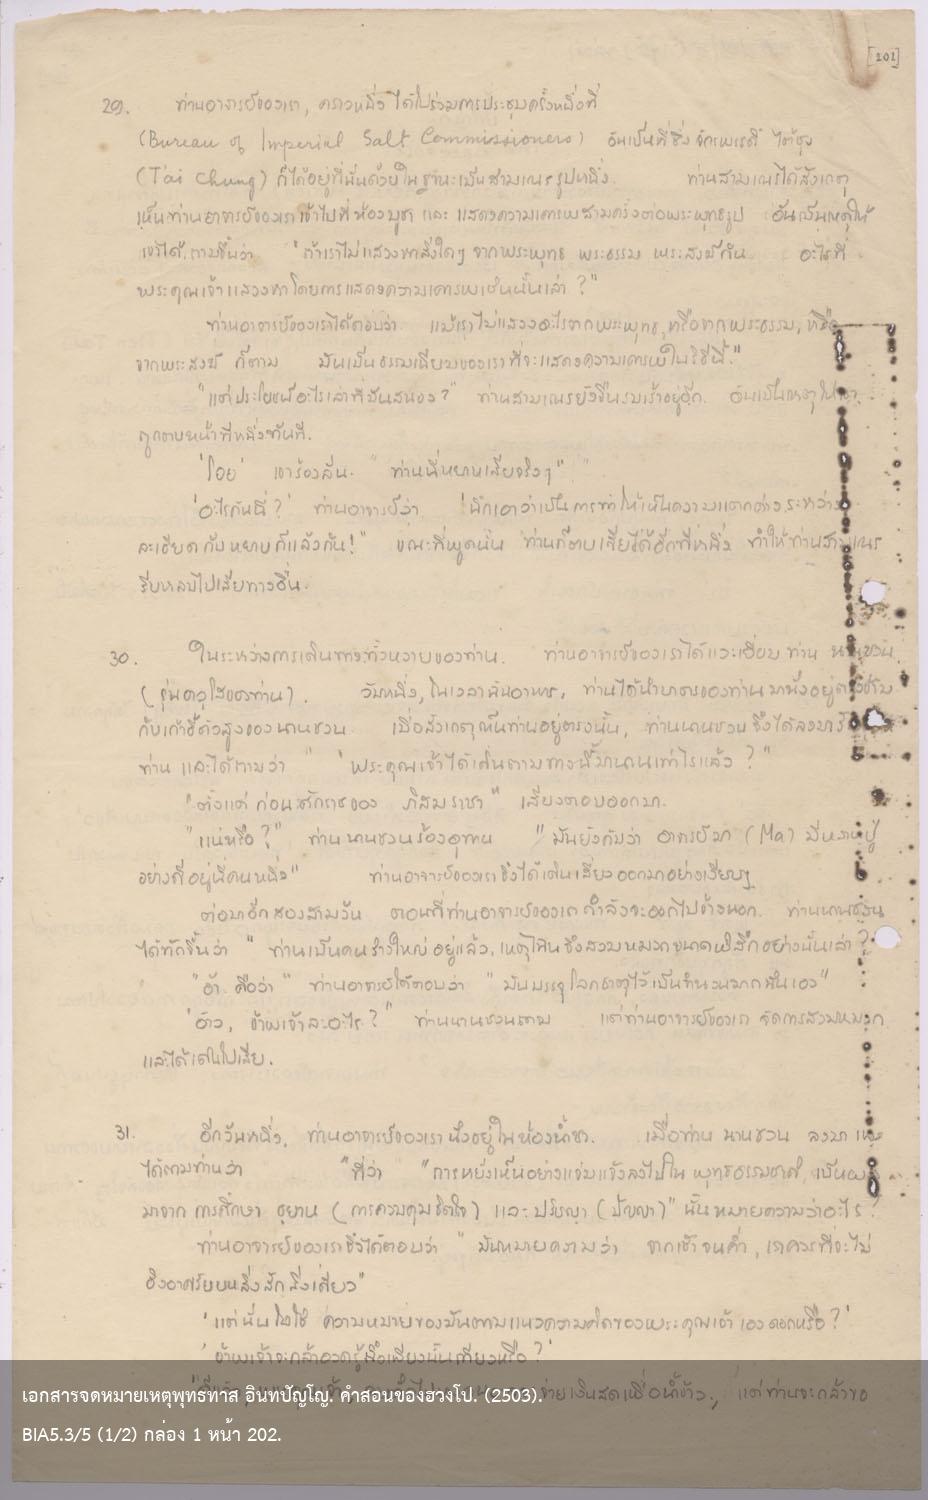 [202]
29. ท่านอาจารย์ของเรา, คราวหนึ่ง ได้ไปร่วมการประชุมครั้งหนึ่งที่
(Bureau of Imperial Salt Commissioners) อันเป็นที่ซึ่ง จักรพรรดิ์ ไต้ชุง
(Tai Chung) ก็ได้อยู่ที่นั่นด้วยในฐานะเป็นสามเณรรูปหนึ่ง. ท่านสามเณรได้สังเกตุ
เห็นท่านอาจารย์ของเราเข้าไปที่ห้องบูชา และ แสดงความเคารพสามครั้งต่อพระพุทธรูป อันเป็นเหตุให้
เขาได้ถามขึ้นว่า "ถ้าเราไม่แสวงหาสิ่งใดๆ จากพระพุทธ พระธรรม พระสงฆ์ อะไรที่
พระคุณเจ้าแสวงหาโดยการแสดงความเคารพเช่นนั้นเล่า ?"
ท่านอาจารย์ของเราได้ตอบว่า แม้เราไม่แสวงอะไรจากพระพุทธ, หรือจากพระธรรม, หรือ
จากพระสงฆ์ ก็ตาม มันเป็นธรรมเนียมของเราที่จะแสดงความเคารพในวิธีนี้."
"แต่ประโยชน์อะไรเล่าที่มันสนอง?" ท่านสามเณรยังยืนรบเร้าอยู่อีก. อันเป็นเหตุให้
ถูกตบหน้าทีหนึ่งทันที.
'โอย' เขาร้องลั่น. "ท่านนี่หยาบเสียจริงๆ"
'อะไรกันนี่?' ท่านอาจารย์ว่า 'นึกเอาว่าเป็นการทำให้เห็นความแตกต่างระหว่าง
ละเอียดกับหยาบก็แล้วกัน!" ขณะที่พูดนั้น ท่านก็ตบเสียได้อีกทีหนึ่ง ทำให้ท่านสามเณร
รีบหลบไปเสียทางอื่น.
30. ในระหว่างการเดินทางทั้งหลายของท่าน. ท่านอาจารย์ของเราได้แวะเยี่ยมท่าน นานชวน
(รุ่นอาวุโสของท่าน). วันหนึ่ง, ในเวลาฉันอาหาร, ท่านได้นำบาตรของท่านมานั่งอยู่ตรงข้าม
กับเก้าอี้ตัวสูงของนานชวน เมื่อสังเกตุเห็นท่านอยู่ตรงนั้น, ท่านนานชวนจึงได้ลงมา
ท่าน และได้ถามว่า "พระคุณเจ้าได้เดินตามทางนี้มานานเท่าไรแล้ว ?"
"ตั้งแต่ก่อนศักราชของ ภิสมราชา" เสียงตอบออกมา.
"แน่หรือ?" ท่านนานชวนร้องอุทาน "มันยังกับว่า อาจารย์มา (Ma) มีหลานปู่
อย่างดีอยู่นี่คนหนึ่ง" ท่านอาจารย์ของเราจึงได้เดินเลี่ยงออกมาอย่างเงียบๆ
ต่อมาอีกสองสามวัน ตอนที่ท่านอาจารย์ของเรากำลังจะออกไปข้างนอก. ท่านนานชวน
ได้ทักขึ้นว่า "ท่านเป็นคนร่างใหญ่อยู่แล้ว, เหตุไฉนจึงสวมหมวกขนาดพิลึกอย่างนั้นเล่า ?
"อ้า คือว่า" ท่านอาจารย์ได้ตอบว่า "มันบรรจุโลกธาตุไว้เป็นจำนวนมากทีเดียว"
'อ้าว, ข้าพเจ้าละอะไร ?" ท่านนานชวนถาม แต่ท่านอาจารย์ของเรา จัดการสวมหมวก
และได้เดินไปเสีย.
31. อีกวันหนึ่ง, ท่านอาจารย์ของเรานั่งอยู่ในห้องน้ำชา. เมื่อท่าน นานชวน ลงมา และ
ได้ถามท่านว่า "ที่ว่า "การหยั่งเห็นอย่างแจ่มแจ้งลงไปในพุทธธรรมชาติ, เป็นผล
มาจาก การศึกษา ธฺยาน (การควบคุมจิตใจ) และ ปรัชญา (ปัญญา)" นั้นหมายความว่าอะไร ?
ท่านอาจารย์ของเราจึงได้ตอบว่า "มันหมายความว่า จากเช้าจนค่ำ, เราควรที่จะไม่
อิงอาศรัยบนสิ่งสักสิ่งเดียว"
'แต่นั่นไม่ใช่ ความหมายของมันตามแนวความคิดของพระคุณเจ้าเองดอกหรือ ?'
'ข้าพเจ้าจะกล้าอวดรู้ถึงเพียงนั้นเทียวหรือ ?'
จ่ายเงินสดเพื่อน้ำข้าว, แต่ท่านจะกล้าขอ
เอกสารจดหมายเหตุพุทธทาส อินทปัญโญ. คำสอนของฮวงโป. (2503).
BIA5.3/5 (1/2) กล่อง 1 หน้า 202.